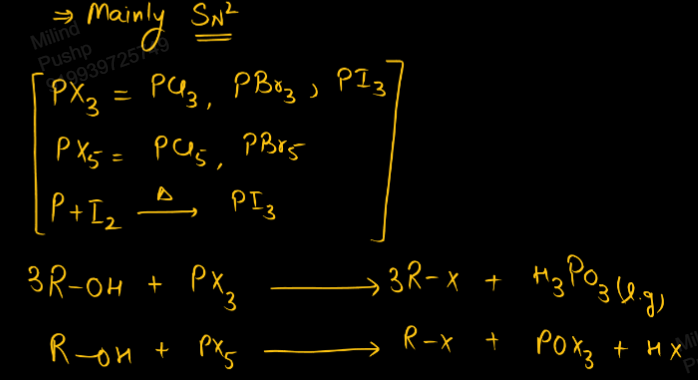 ⇒ Mainly SN²
Milind
Pushp
PX₃ = PCl₃, PBr₃, PI₃
PX₅ = PCl₅, PBr₅
P + I₂ —Δ→ PI₃
3R-OH + PX₃ ⟶ 3R-X + H₃PO₃
R-OH + PX₅ ⟶ R-X + POX₃ + HX